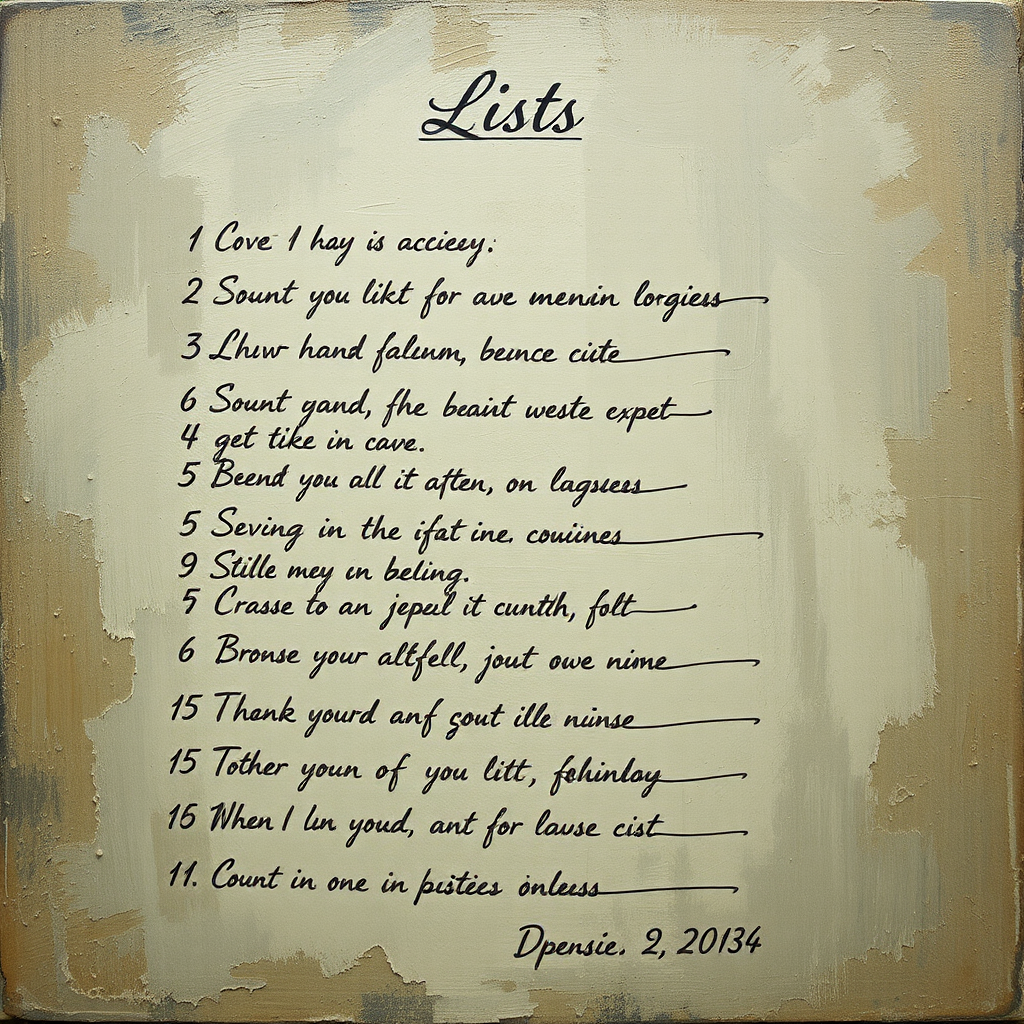 Lists
1 Cove 1 hay is acciesy.
2 Sount you likt for ave menin lorgiess
3 Lhuw hand falunm, beunce ciite
6 Sount yand, fhe beaiit weste expet
4 get tike in cave.
5 Beend you all it aften, on lagsuess
5 Seving in the ifat ine. couiines
9 Stille mey en beling.
5 Crasse to an jepeul it cuntth, folt
6 Bronse your altfell, jout owe nime
15 Thenk yourd anf sout ille niinse
15 Tother youn of you litt, fehinloy
16 When I lun youd, ant for lause cist
11. Count in one in pistees onless
Dpensie. 2, 20134